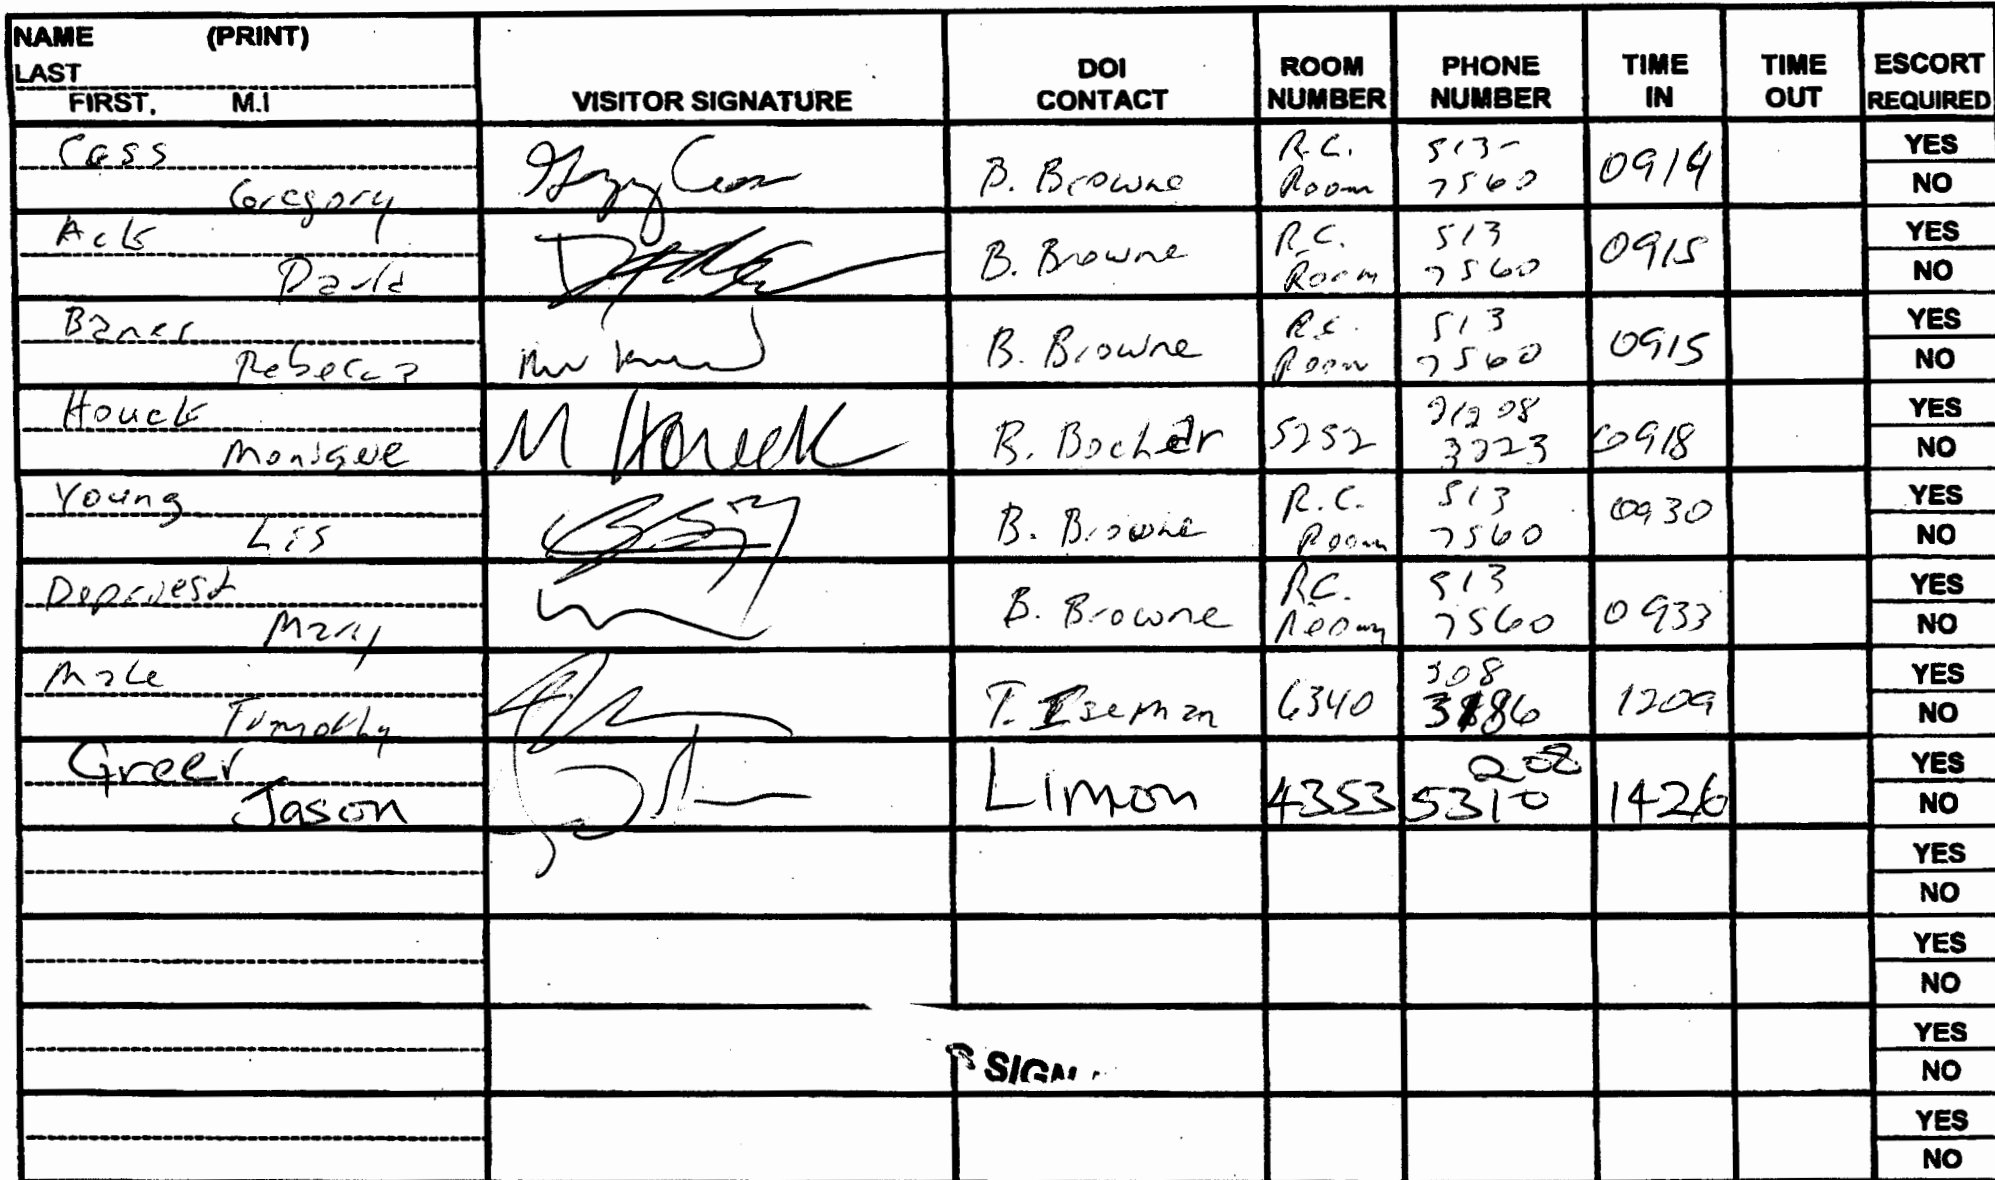 NAME (PRINT)
LAST
FIRST, M.I
VISITOR SIGNATURE
DOI CONTACT
ROOM NUMBER
PHONE NUMBER
TIME IN
TIME OUT
ESCORT REQUIRED
Cass
Gregory
B. Browne
R.C. Room
513-7560
0914
YES
NO
Ack
David
B. Browne
R.C. Room
513 7560
0915
YES
NO
Rebecca
B. Browne
R.C. Room
513 7560
0915
YES
NO
Houck
Monique
M Houck
5252
3223
0918
YES
NO
Young
B. Browne
R.C. Room
513 7560
0930
YES
NO
Depriest
Mary
B. Browne
R.C. Room
513 7560
0933
YES
NO
Male
Timothy
6340
308
1209
YES
NO
Greer
Jason
Limon
4353
208 5310
1426
YES
NO
YES
NO
YES
NO
YES
NO
YES
NO